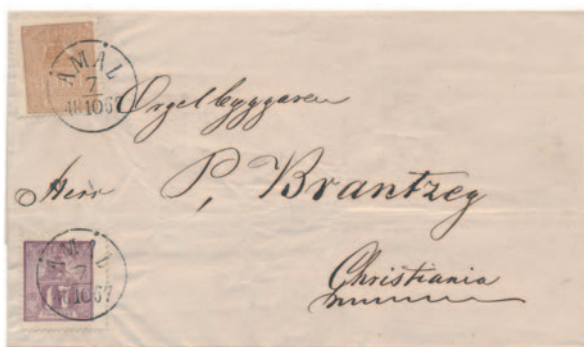 ÅMÅL
7
1867
Orgelbyggaren
Herr P. Brantzeg
Christiania
ÅMÅL
7
1867
17